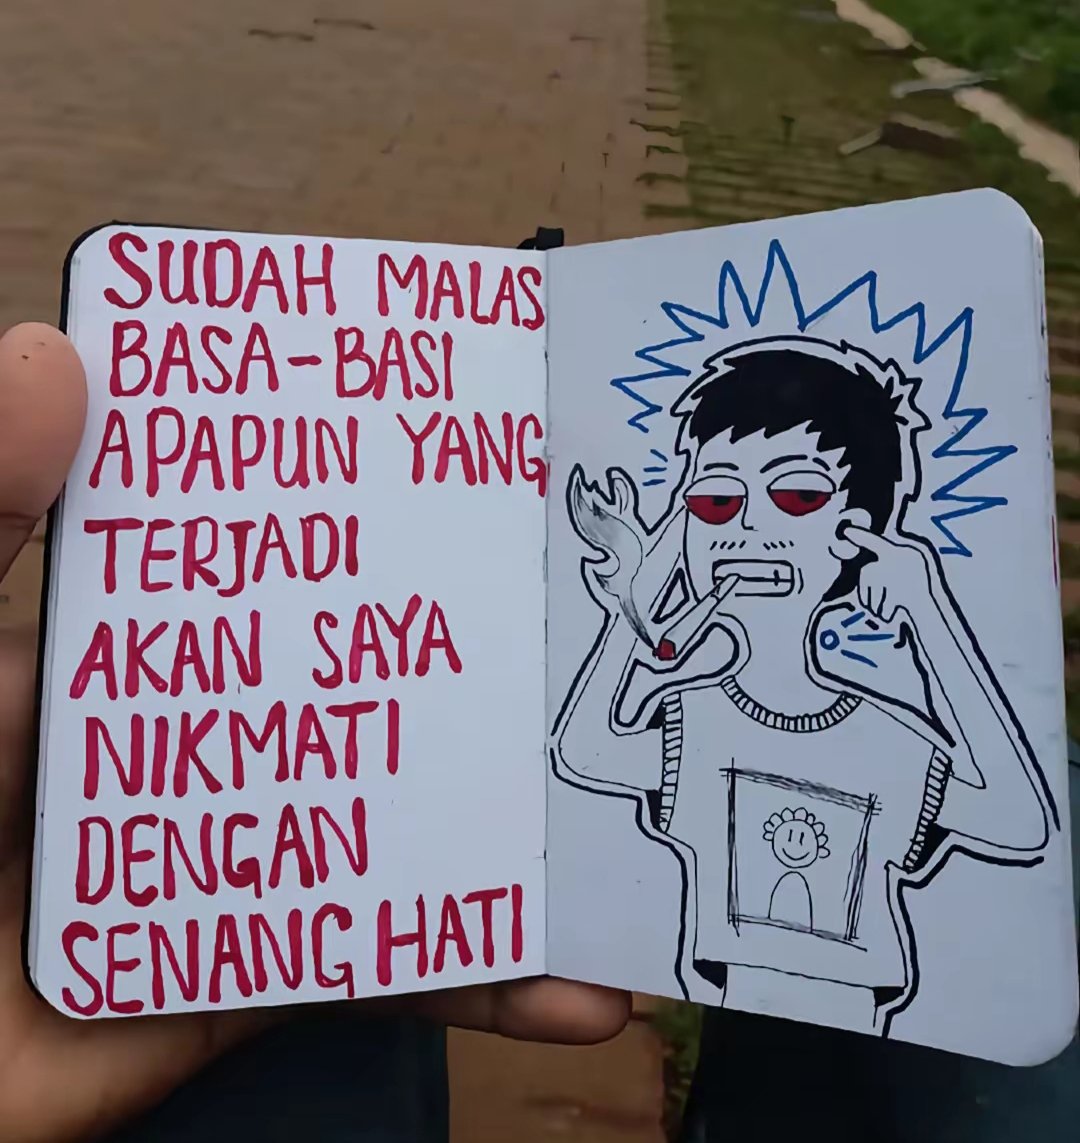 SUDAH MALAS
BASA-BASI
APAPUN YANG
TERJADI
AKAN SAYA
NIKMATI
DENGAN
SENANG HATI